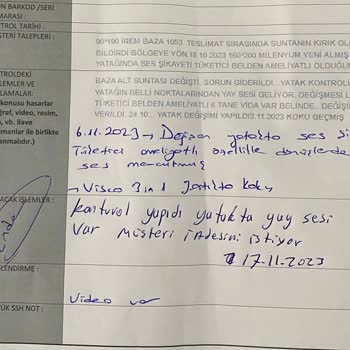 ÜN BARKOD /SERİ
MARASI :
ROL TARİHİ :
ŞTERİ TALEPLERİ :
90*190 İREM BAZA 1053 TESLİMAT SIRASINDA SUNTANIN KIRIK OL
BİLDİRDİ BÖLGEYE YÖN.18.10.2023 160*200 MİLENYUM YENİ ALMIŞ
YATAĞINDA SES ŞİKAYETİ TÜKETİCİ BELDEN AMELİYATLI OLDUĞU
TROLDEKİ
LEMLER VE
LAMALAR:
konusu hasarlar
ğraf, video, resim,
vb. ilave
manlar ile birlikte
anmalıdır.)
BAZA ALT SUNTASI DEĞİŞTİ. SORUN GİDERİLDİ...YATAK KONTROLİ
YATAĞIN BELLİ NOKTALARINDAN YAY SESİ GELİYOR. DEĞİŞMESİ L
TÜKETİCİ BELDEN AMELİYATLI 6 TANE VİDA VAR BELİNDE.. DEĞİŞ
VERİLDİ. 24.10.. YATAK DEĞİŞİMİ YAPILDI 3.11.2023 KOKU GEÇMİŞ
6.11.2023 → Değişen yatakta ses
Tüketici ameliyatlı özellikle dönüşlerde
ses mevcutmuş
→ Visco 3in1 yatakta koku
ACAK İŞLEMLER :
kontrol yapıdı yatakta yay sesi
var müşteri iadesini istiyor
17-11-2023
LENDİRME :
ÜK SSH NOT :
video var